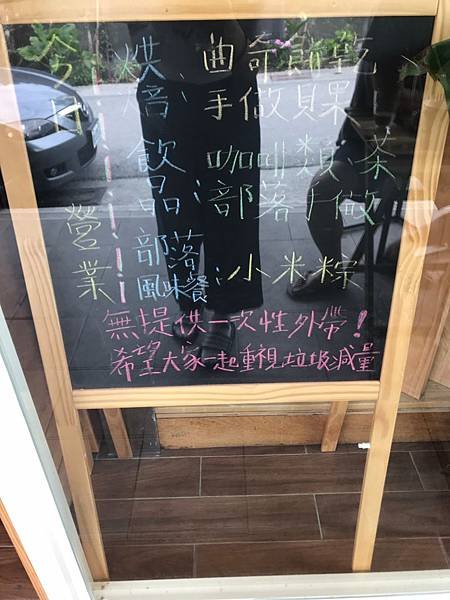 今日營業
烘焙：曲奇餅乾
手做貝果
飲品：咖啡類 茶
部落手做
部落風味餐：小米粽
無提供一次性外帶！
希望大家一起重視垃圾減量